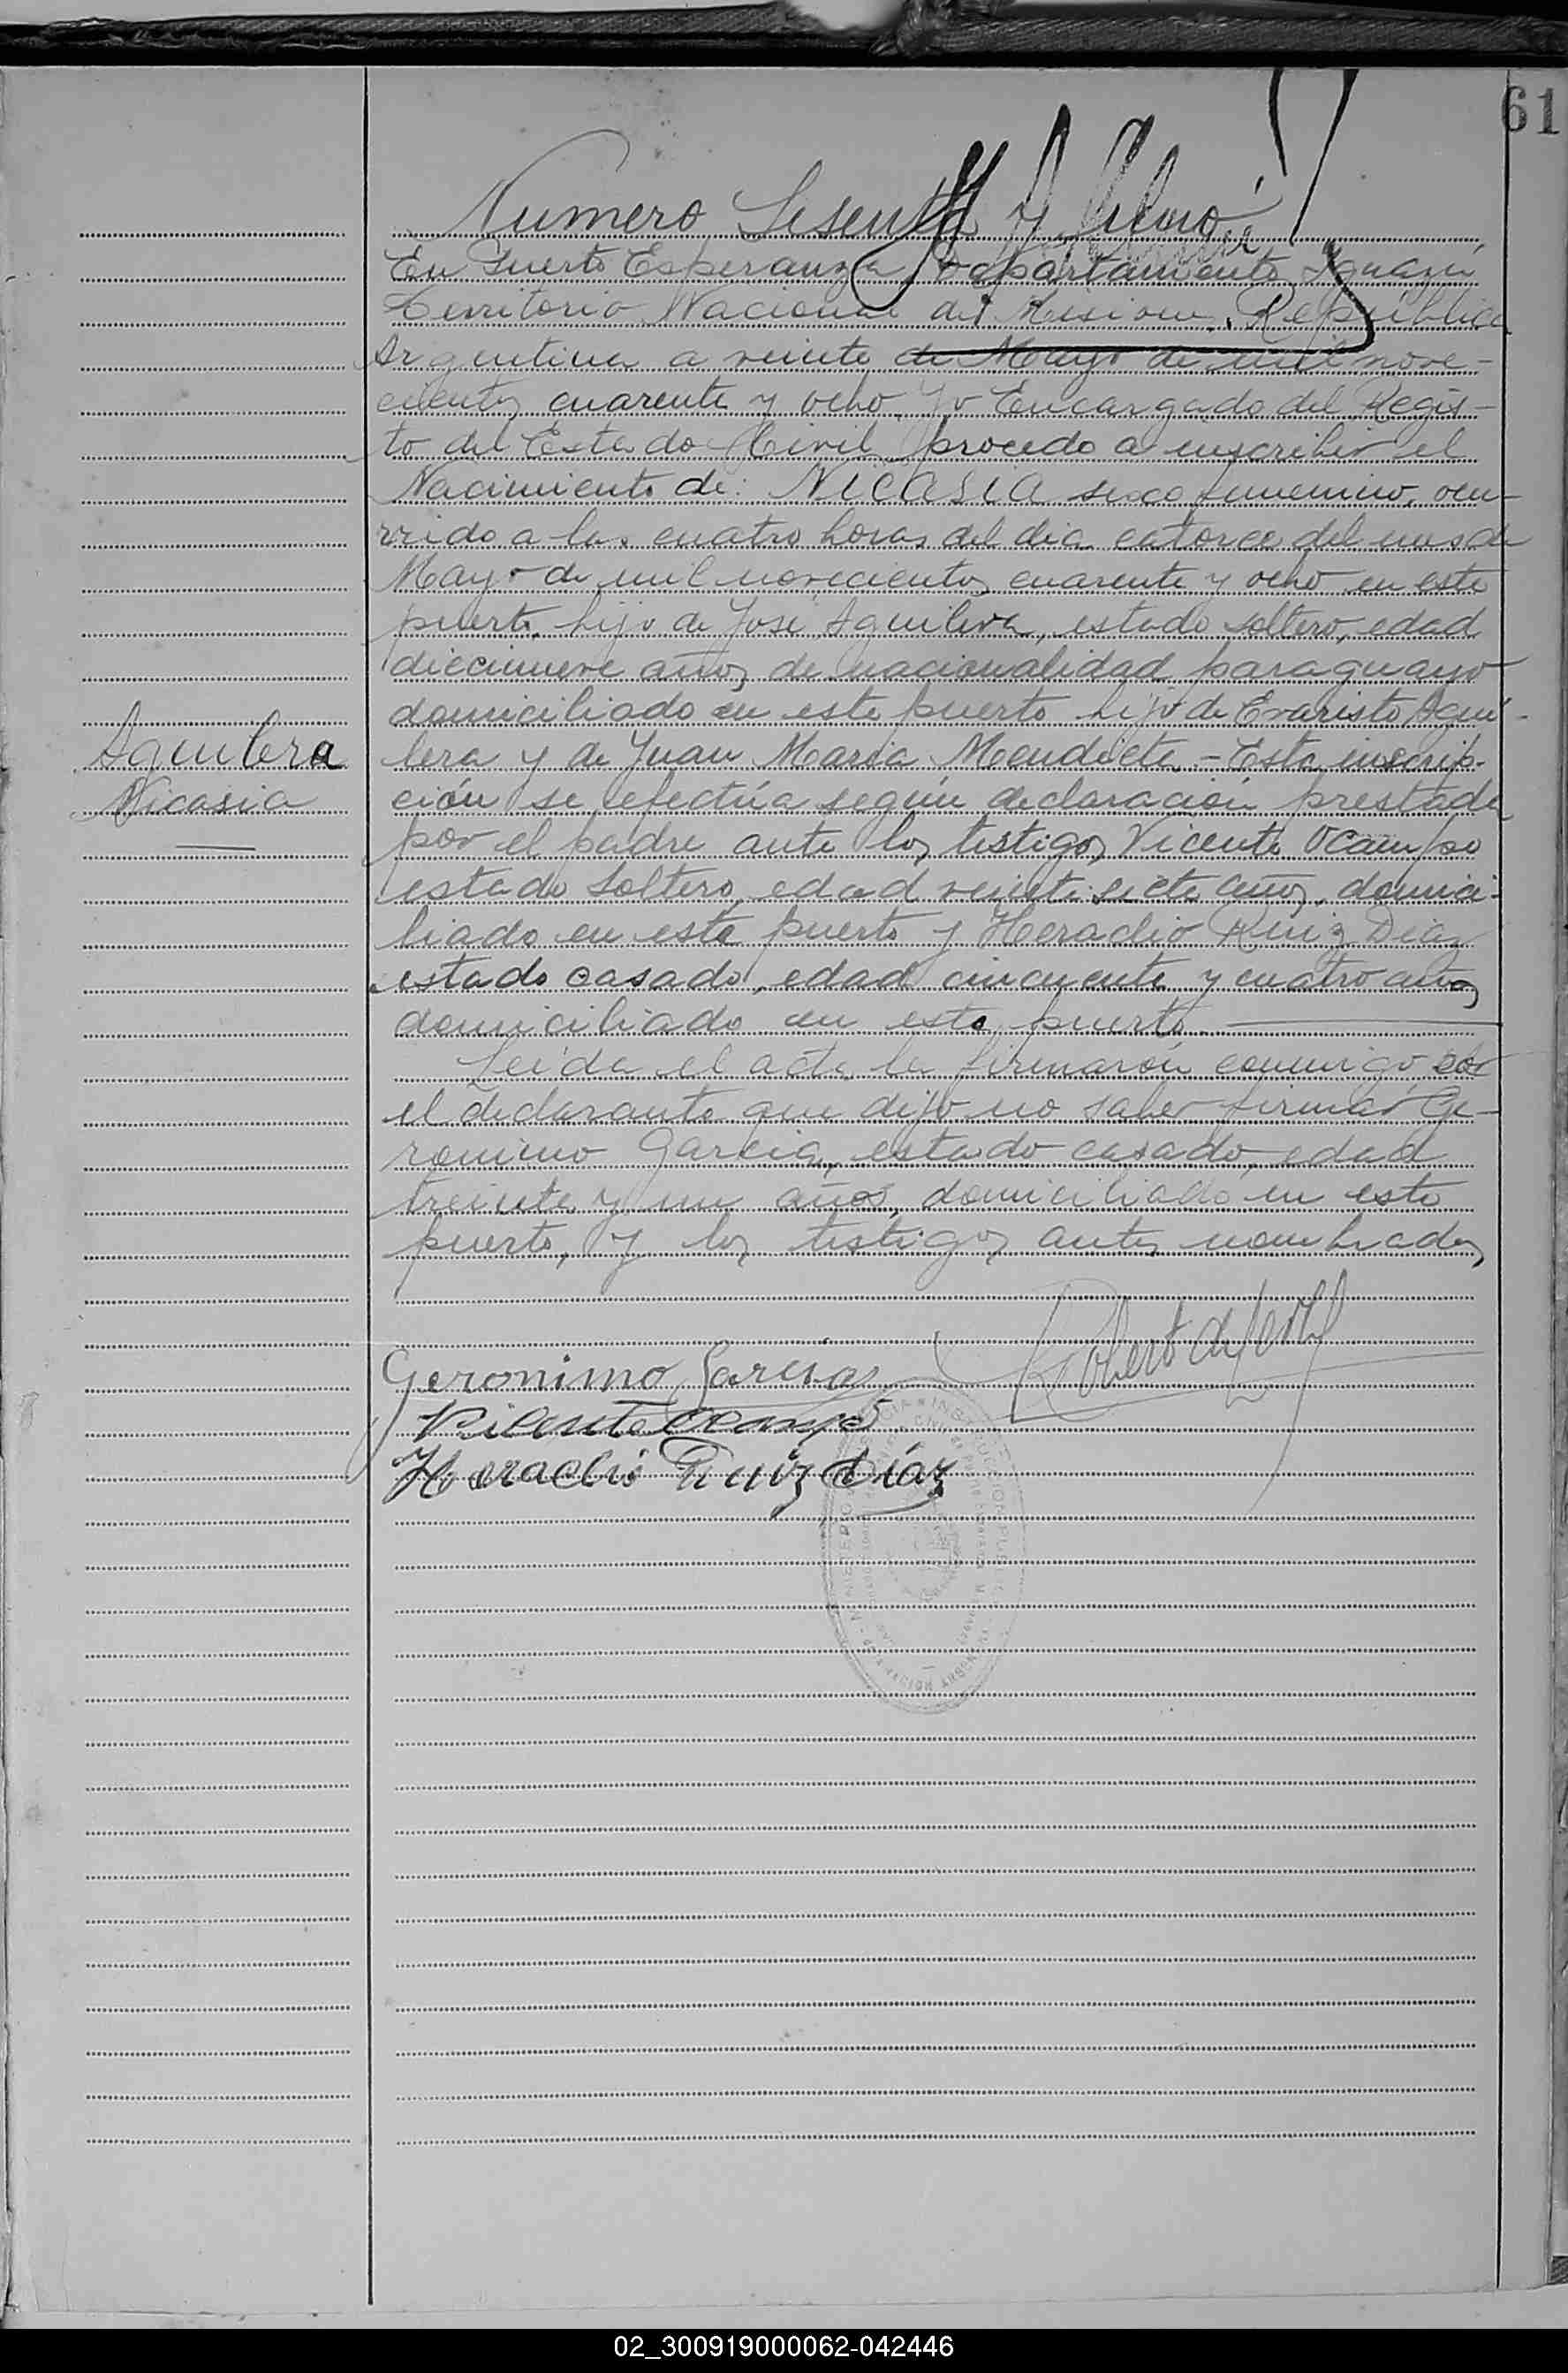 61
Numero Sesenta y Uno
En Puerto Esperanza, Departamento Iguazú
Territorio Nacional de Misiones, República
Argentina a veinte de Mayo de mil nove-
cientos cuarenta y ocho. Yo Encargado del Regis-
to del Estado Civil procedo a inscribir el
Nacimiento de: NICASIA sexo femenino, ocu-
rrido a las cuatro horas del dia catorce del mes de
Mayo de mil novecientos cuarenta y ocho en este
puerto, hijo de José Aguilera, estado soltero, edad
diecinueve años, de nacionalidad paraguayo
domiciliado en este puerto hijo de Evaristo Agui-
lera y de Juan Maria Mendieta. - Esta inscrip-
ción se efectúa según declaración prestada
por el padre ante los testigos Vicente Ocampo
estado soltero, edad veinte siete años, domici-
liado en este puerto y Heraclio Ruiz Diaz
estado casado, edad cincuenta y cuatro años
domiciliado en este puerto.
Leida el acta la firmarón conmigo, por
el declarante que dijo no saber firmar Ge-
ronimo Garcia, estado casado, edad
treinta y un años, domiciliado en este
puerto, y los testigos antes nombrados
Aguilera
Nicasia
Geronimo Garcia
Vicente Ocampo
Heraclio Ruiz Díaz
02_300919000062-042446